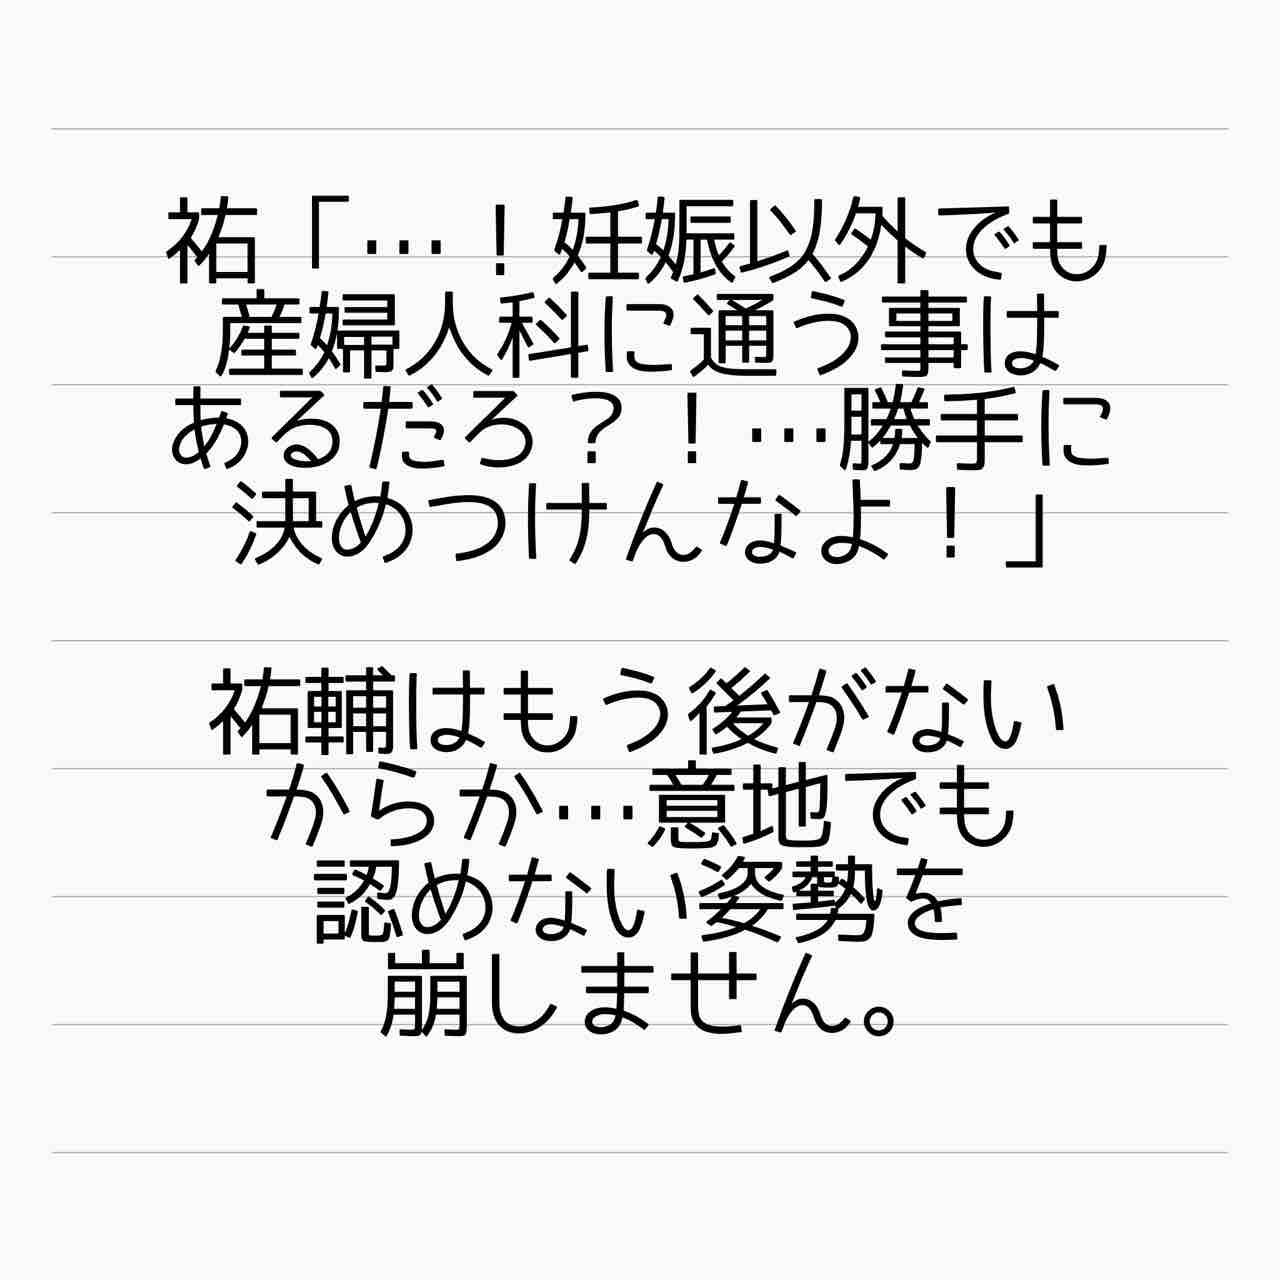 祐「…！妊娠以外でも
産婦人科に通う事は
あるだろ？！…勝手に
決めつけんなよ！」
祐輔はもう後がない
からか…意地でも
認めない姿勢を
崩しません。